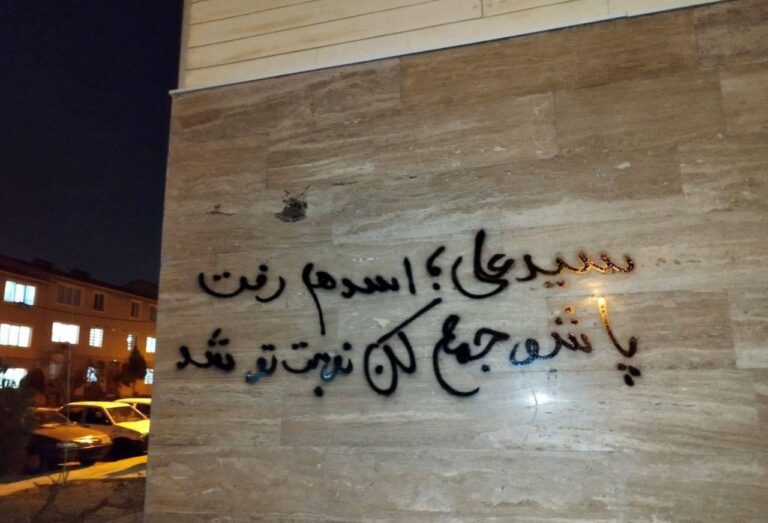 سیدعلی؛ اسدهم رفت
پاشو جمع کن نوبت تو شد